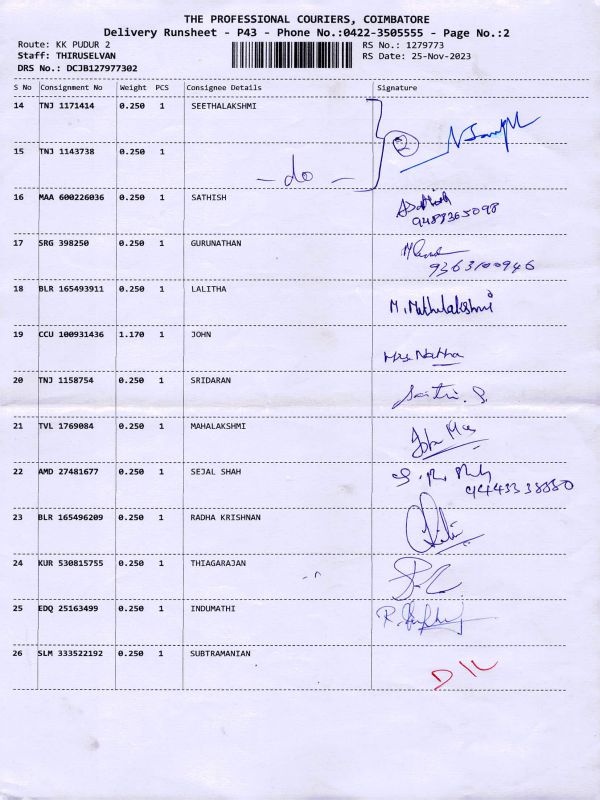 THE PROFESSIONAL COURIERS, COIMBATORE
Delivery Runsheet - P43 - Phone No.:0422-3505555 - Page No.:2
Route: KK PUDUR 2 RS No.: 1279773
Staff: THIRUSELVAN RS Date: 25-Nov-2023
DRS No.: DCJB127977302
S No Consignment No Weight PCS Consignee Details Signature
14 TNJ 1171414 0.250 1 SEETHALAKSHMI
2
15 TNJ 1143738 0.250 1
- do -
16 MAA 600226036 0.250 1 SATHISH
9488365098
17 SRG 398250 0.250 1 GURUNATHAN
9363100946
18 BLR 165493911 0.250 1 LALITHA
M. Muthulakshmi
19 CCU 100931436 1.170 1 JOHN
Mrs Natha
20 TNJ 1158754 0.250 1 SRIDARAN
21 TVL 1769084 0.250 1 MAHALAKSHMI
22 AMD 27481677 0.250 1 SEJAL SHAH
94443338880
23 BLR 165496209 0.250 1 RADHA KRISHNAN
24 KUR 530815755 0.250 1 THIAGARAJAN
25 EDQ 25163499 0.250 1 INDUMATHI
26 SLM 333522192 0.250 1 SUBTRAMANIAN
D/L